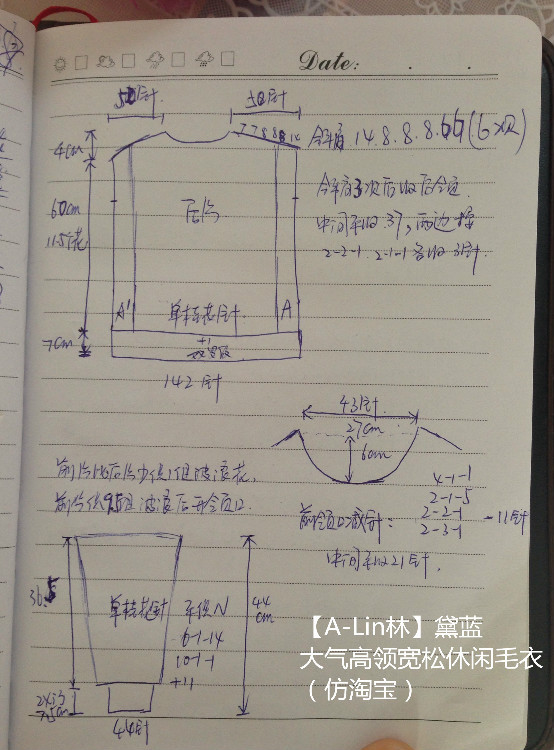 Date:
50针
50针
4cm
778881
斜肩 14.8.8.8.
(6次)
60cm
11.5花
后片
斜肩3次后收后领
中间平收37, 两边按
2-2-1. 2-1-1 各收3针.
A'
单桂花针
A
7cm
+1
双罗纹
142针
43针
27cm
6cm
4-1-1
2-1-5
2-2-1
2-3-1
-11针
前领口减针:
中间平收21针.
前片比后片少织1组波浪花.
前片织9.5组波浪后开领口.
36.5
单桂花针
平织N
6-1-14
10-1-1
+11
44
cm
7.5cm
44针
【A-Lin林】黛蓝
大气高领宽松休闲毛衣
（仿淘宝）